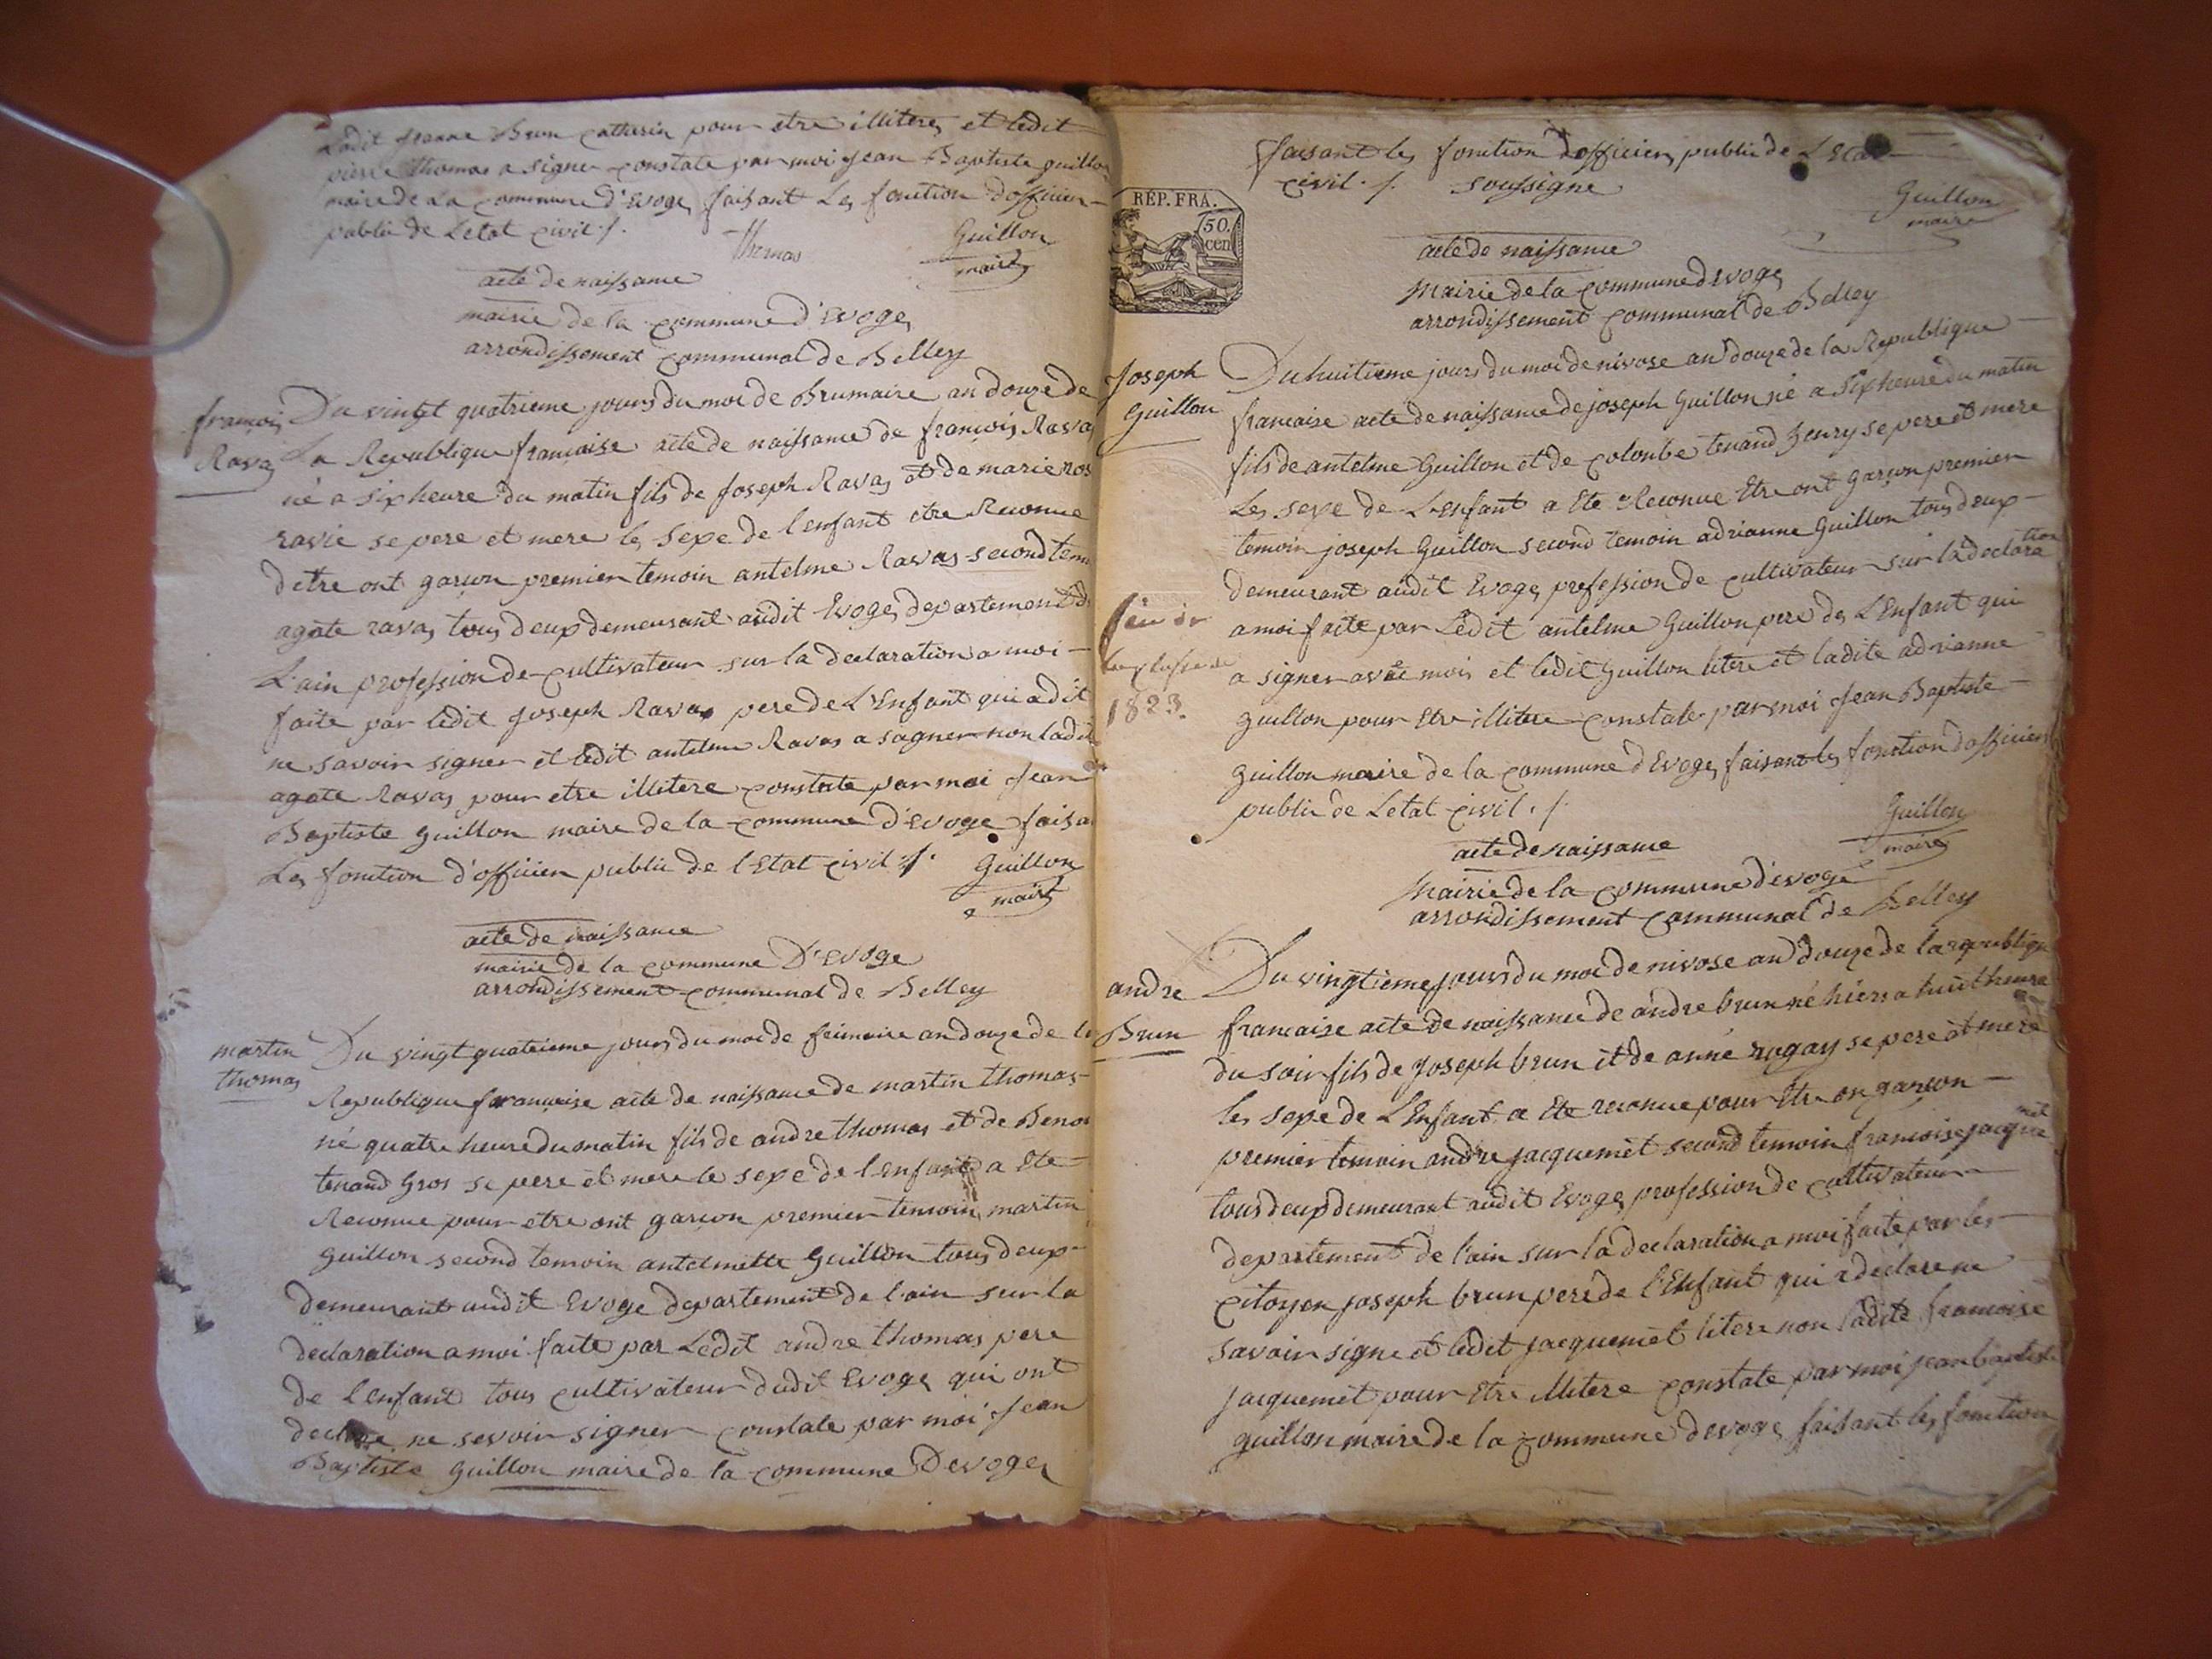 Ladit jeanne Brun catherin pour etre illitere et ledit
pierre thomas a signer constate par moi jean Baptiste guillon
maire de la commune d'Evoge faisant Les fonction dofficier
publit de Letat civil ./.
Thomas
Guillon
maire
acte de naissance
mairie de la commune d'Evoges
arrondissement communal de Belley
françois
Ravas
Du vingt quatrieme jours du moi de Brumaire an douze de
La Republique françaíse acte de naissance de françois Ravas
né a sixheure du matin fils de Joseph Ravas et de marie ros
ravie se pere et mere les sexe de l'enfant etre Reconnue
detre ont garçon premier temoin antelme Ravas second tem
agate ravas tous deux demeurant audit Evoges departement d
L'ain profession de cultivateur sur la declaration a moi
faite par ledit Joseph Ravas pere de L'Enfant qui a dit
ne savoir signer et ledit antelme Ravas a sagner non ladit
agate Ravas pour etre illitere constate par moi Jean
Baptiste guillon maire de la commune d'Evoge faisa
Les fonction d'officier publit de l'Etat civil ./.
Guillon
maire
acte de naissance
mairie de la commune D'Evoge
arrondissement communal de Belley
martin
thomas
Du vingt quatrieme jours du moi de frimaire an douze de la
Republique francaise acte de naissance de martin thomas
né quatre heure du matin fils de andre thomas et de Benoi
tenand Gros se pere et mere le sexe de l'enfant a Ete
Reconnue pour etre ont garcon premier temoin martin
guillon second temoin antelmette Guillon tous deux
demeurant audit Evoge departement de l'ain sur la
declaration a moi faite par Ledit andre thomas pere
de l'enfant tous cultivateur dudit Evoges qui ont
declare ne sevoir signer constate par moi Jean
Baptiste Guillon maire de la commune Devoges
faisant les fonction dofficier publit de L'Etat
civil ./. soussigne
Guillon
maire
RÉP. FRA.
50.
cen
acte de naissance
Mairie de la commune d'Evoges
arrondissement communal de Belley
Joseph
Guillon
Du huitieme jours du moi de nivose an douze de la Republique
francaise acte de naissance de joseph Guillon né a sixheure du matin
fils de antelme Guillon et de colombe tenand Henry se pere et mere
Les sexe de L'enfant a Ete Reconue Etre ont garçon premier
temoin joseph Guillon second temoin adrianne Guillon tous deux
demeurant audit Evoges profession de cultivateur sur la declaration
a moi faite par Ledit antelme Guillon pere de L'Enfant qui
a signer avec mois et ledit Guillon litere et ladite adrianne
guillon pour Etre illitere constate par moi Jean Baptiste
Guillon maire de la commune d'Evoges faisant les fonction dofficier
publit de Letat civil ./.
Guillon
maire
1823.
acte de naissance
Mairie de la commune d'evoge
arrondissement communal de Belley
andre
Brun
Du vingtieme jours du moi de nivose an douze de la republique
francaise acte de naissance de andre brun né hiers a huit heure
du soir fils de Joseph brun et de anne rugay se pere et mere
les sexe de L'Enfant a Ete reconue pour Etre on garçon
premier temoin andre jacquemet second temoin francoise jacquemet
tous deux demeurant audit Evoges profession de cultivateur
departement de l'ain sur la declaration a moi faite par les
citoyen joseph brun pere de l'Enfant qui a declare ne
savoir signe et ledit jacquemet litere non ladite francoise
jacquemet pour Etre illitere constate par moi jean baptiste
guillon maire de la commune devoges faisant les fonction